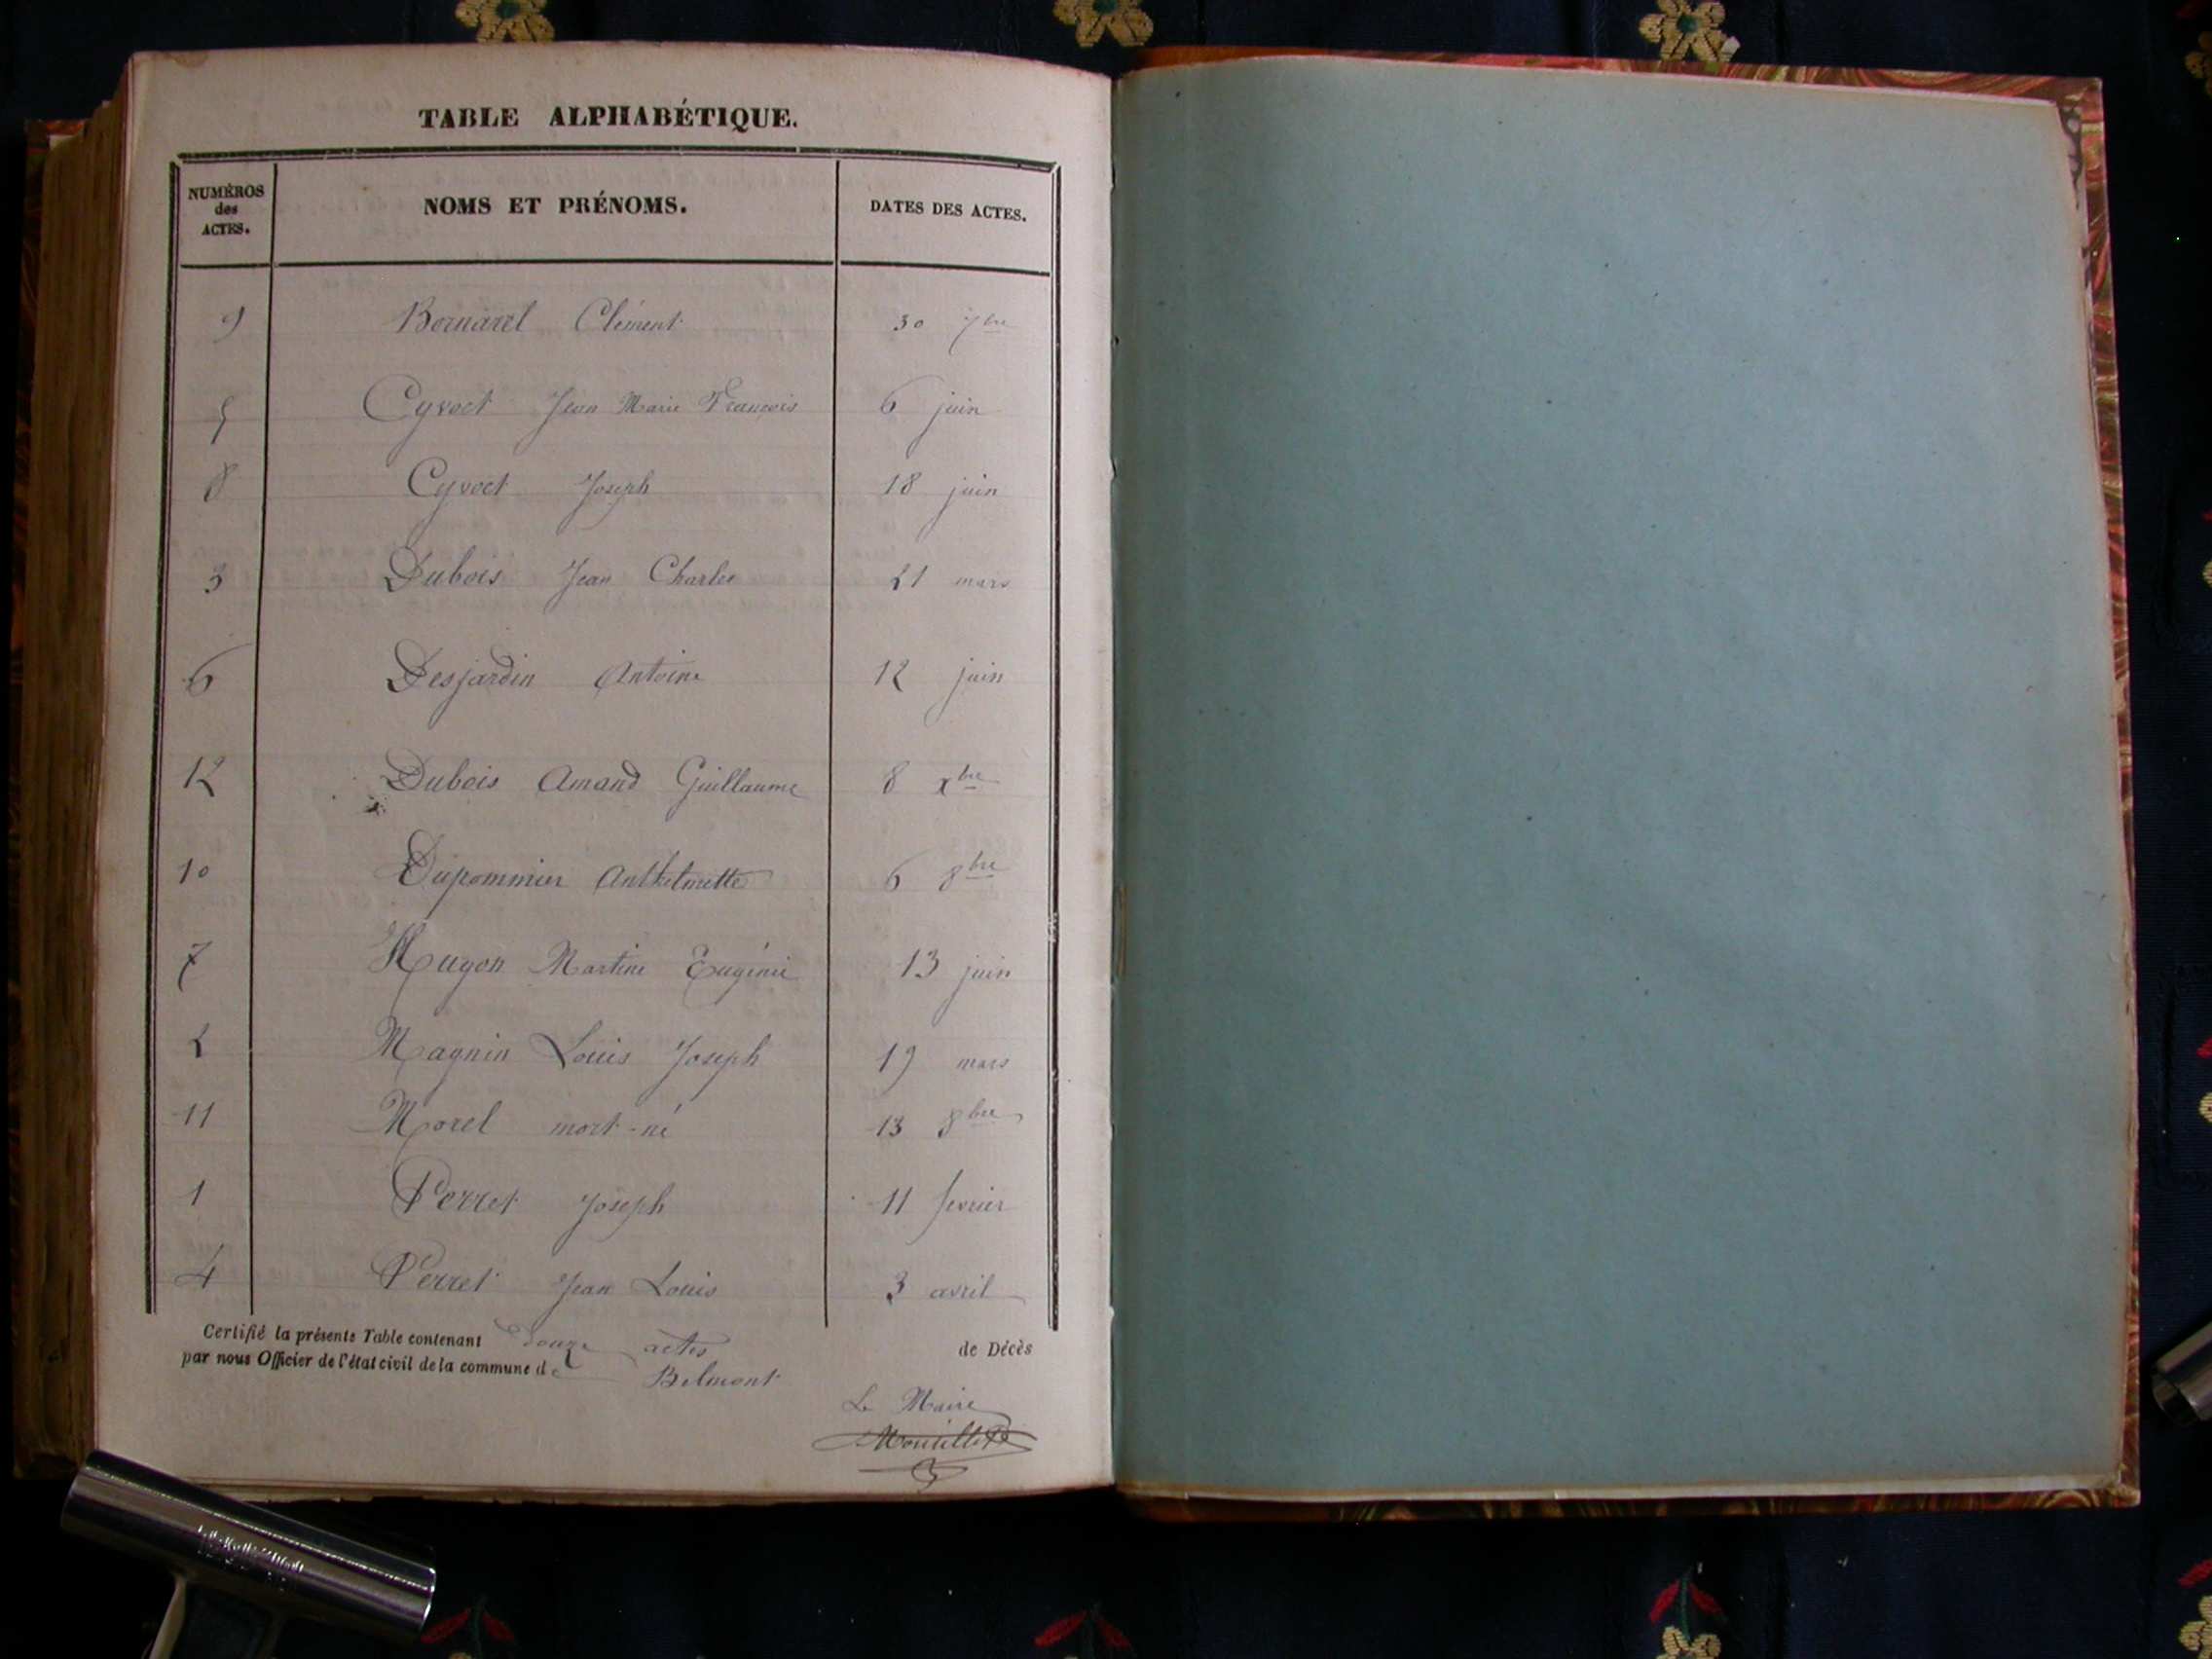 TABLE ALPHABÉTIQUE.
NUMÉROS des ACTES. NOMS ET PRÉNOMS. DATES DES ACTES.
9 Bornarel Clément 30 7bre
5 Cyvoct Jean Marie François 6 juin
8 Cyvoct Joseph 18 juin
3 Dubois Jean Charles 21 mars
6 Desjardin Antoine 12 juin
12 Dubois Amand Guillaume 8 xbre
10 Dupommier Anthelmette 6 8bre
7 Hugon Martine Eugénie 13 juin
2 Magnin Louis Joseph 19 mars
11 Morel mort-né 13 8bre
1 Perret Joseph 11 fevrier
4 Perret Jean Louis 3 avril
Certifié la présente Table contenant douze actes de Décès
par nous Officier de l'état civil de la commune de Belmont
Le Maire